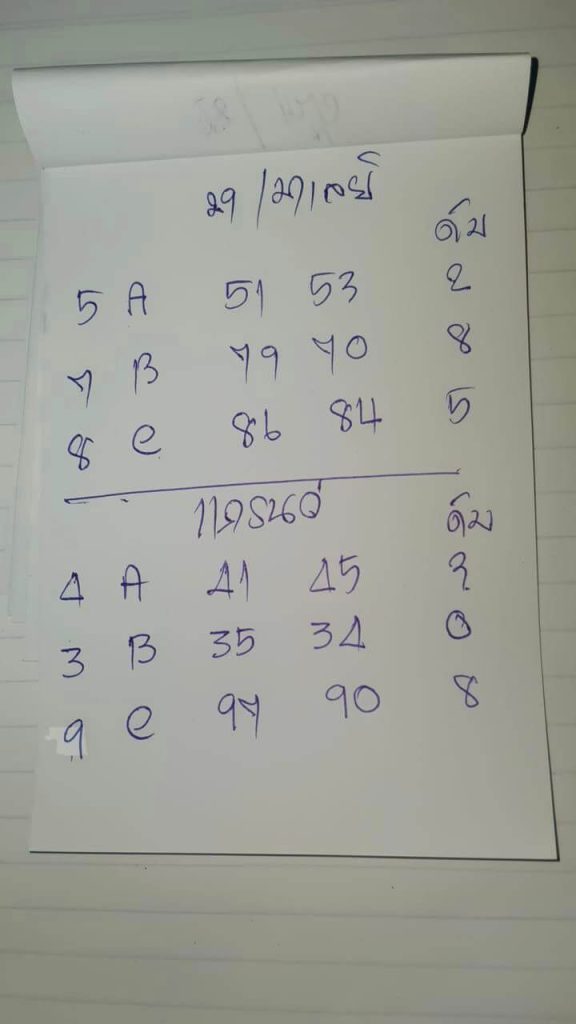 29 / มาเลย์
ดับ
5 A 51 53 2
7 B 79 70 8
8 C 86 84 5
แกรนด์
ดับ
4 A 41 45 2
3 B 35 34 0
9 C 97 90 8